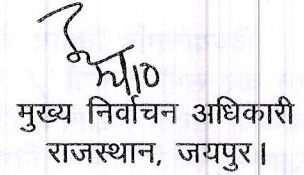 मुख्य निर्वाचन अधिकारी
राजस्थान, जयपुर।